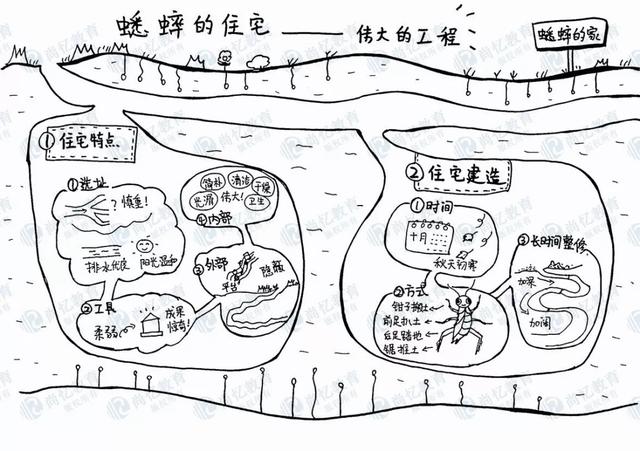 蟋蟀的住宅——伟大的工程
蟋蟀的家
①住宅特点
①选址
?慎重!
排水优良 阳光温和
②工具
柔弱
成果
惊奇!
③外部
平台
隐蔽
④内部
简朴 清洁 干燥
光滑 伟大! 卫生
②住宅建造
①时间
十月
秋天初寒
②方式
钳子搬土
前足扒土
后足踏地
锯推土
③长时间整修
加深
加阔
尚忆教育
版权所有